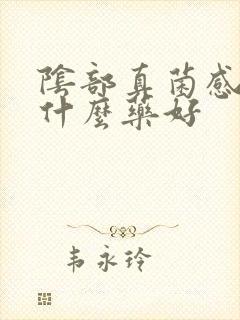 陰部真菌感
什麼藥好
韦永玲